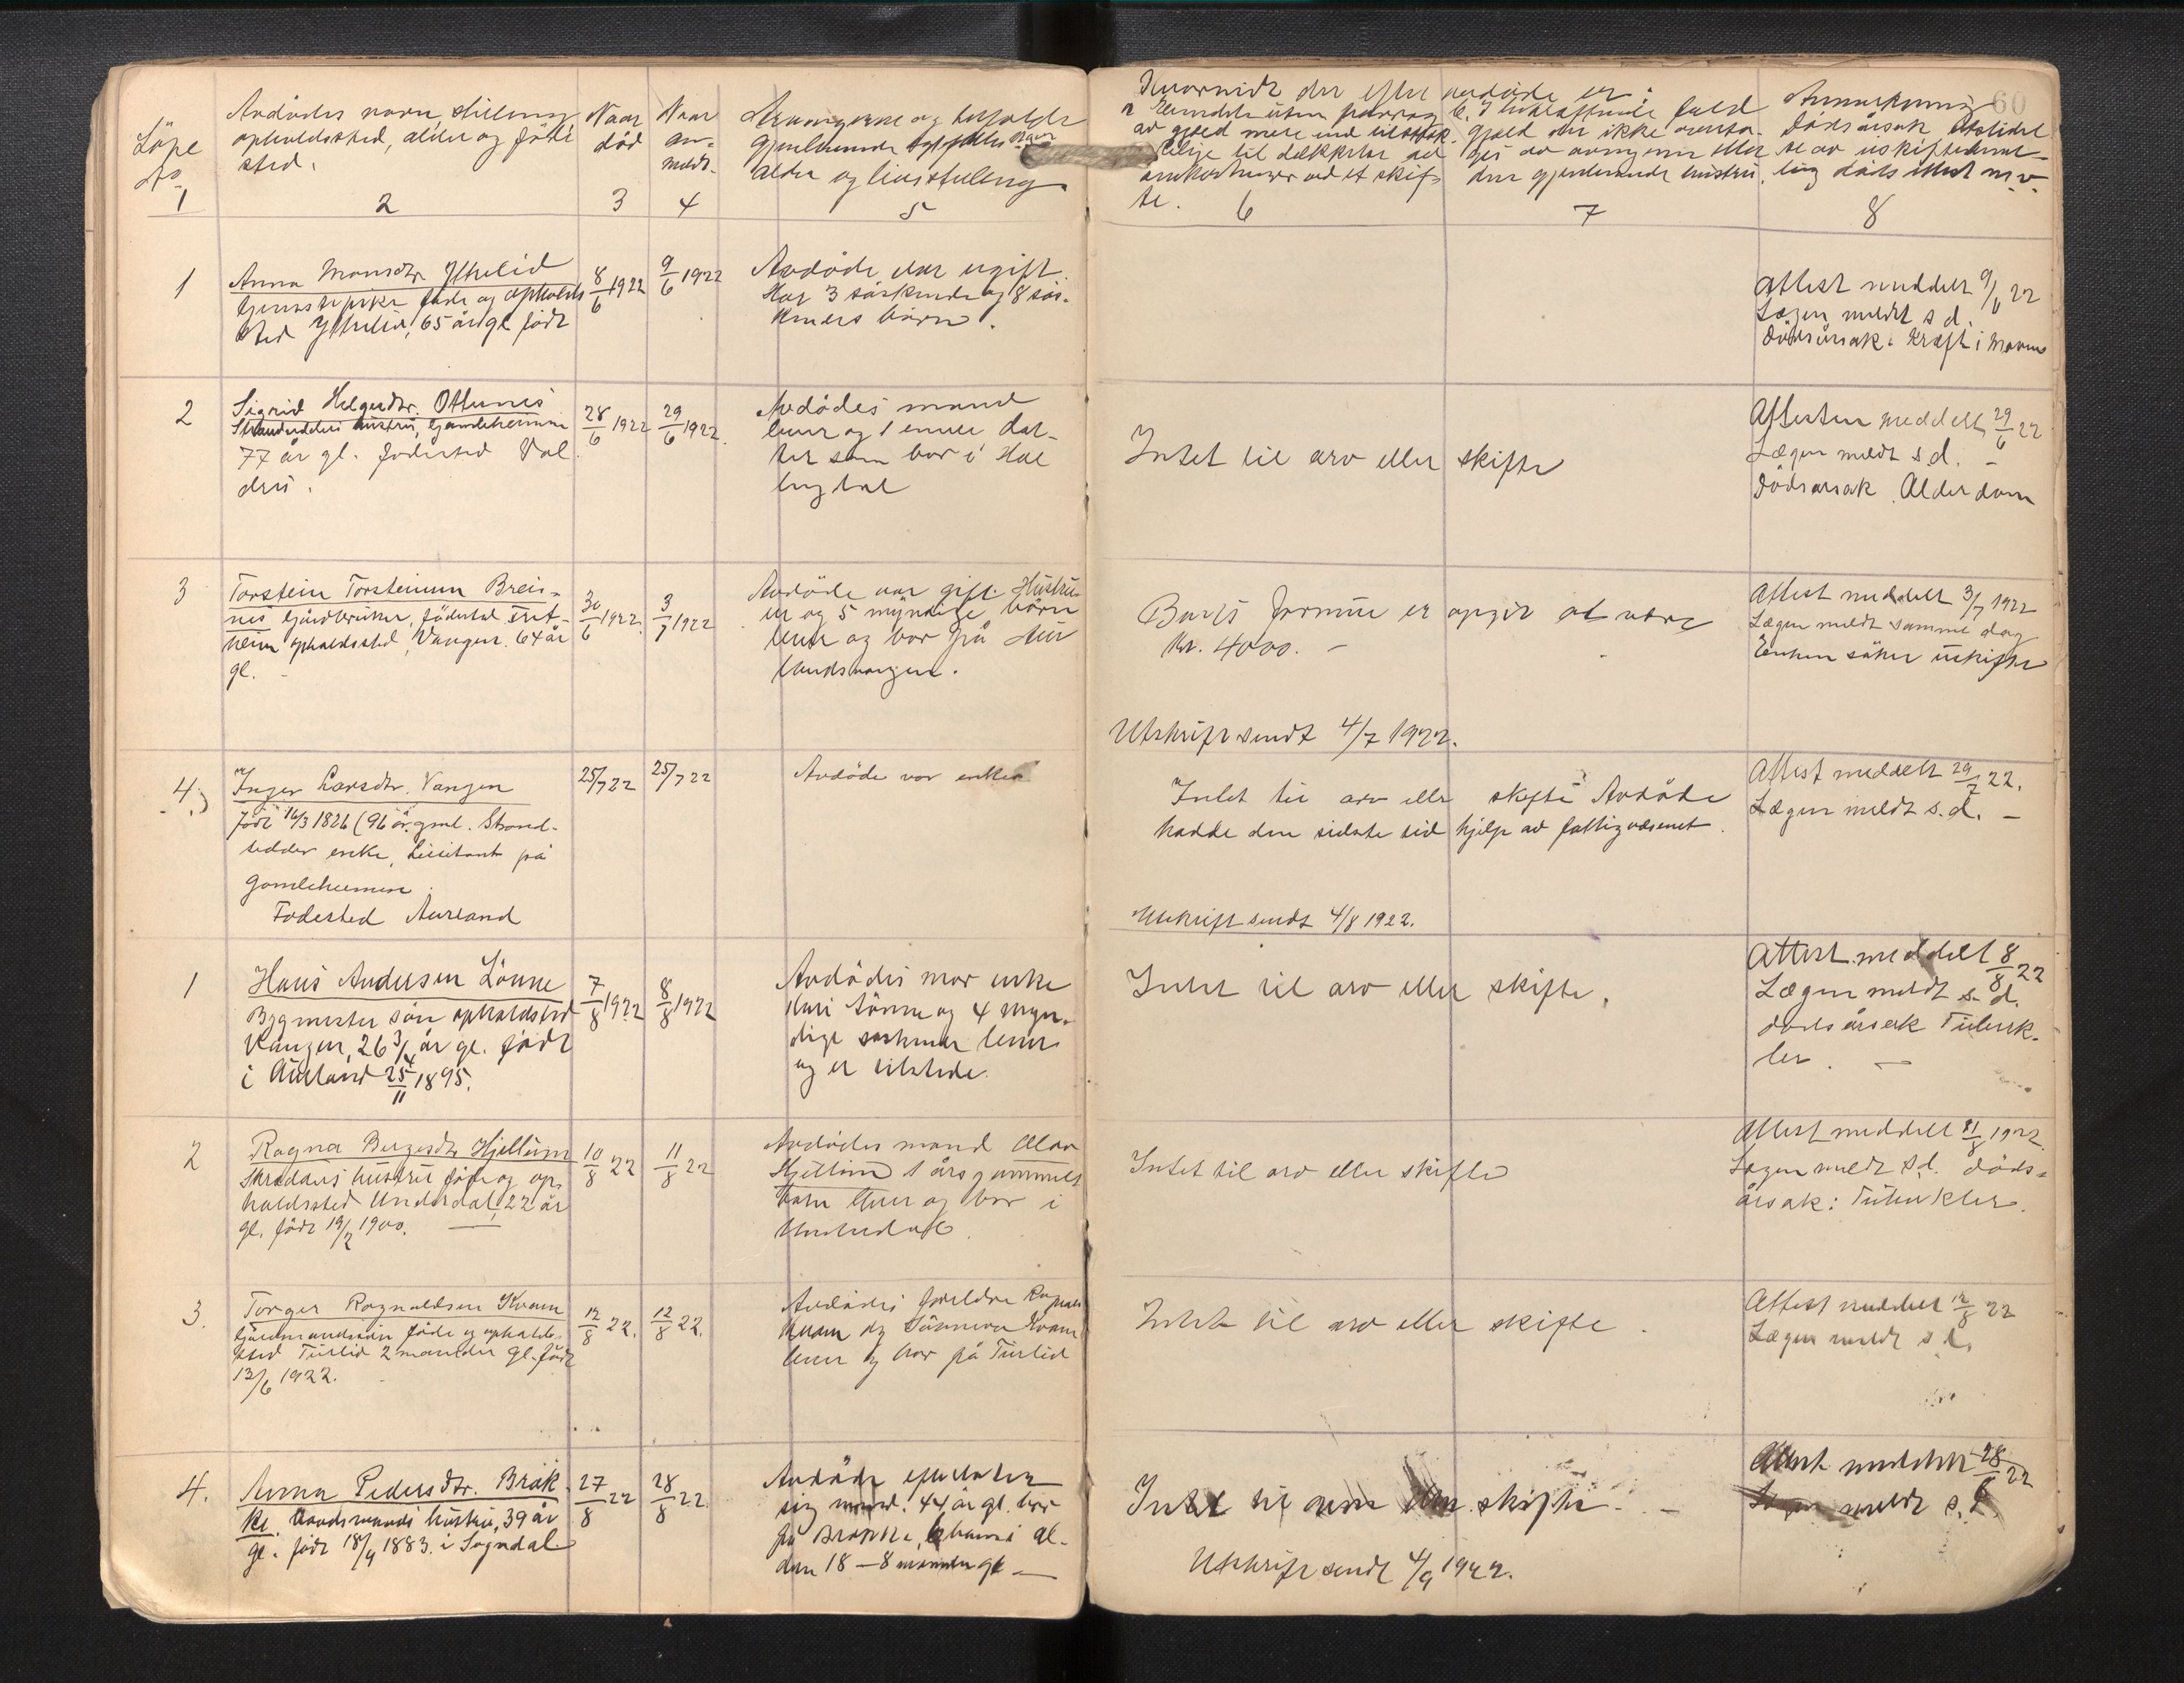 Løpe
No
1
Avdødes navn, stilling
opholdssted, alder og føde
sted.
2
Naar
død
3
Naar
an-
meldt.
4
Arvingerne og
gjenlevende
alder og livsstilling
5
Hvorvidt der efter avdøde er:
av gjæld mere end tilstræk-
kelige til dækkelse av
omkostninger ved et skif-
te.
6
b. I bekræftende fald
gjæld der ikke overta-
ges av arvingerne eller
den gjenlevende hustru.
7
Anmerkning 60
Dødsårsak, utstedel
se av uskifteber-
ling dødsattest m.v.
8
1
Anna Monsdtr. Ytrelid
tjenestepike føde og opholds
sted Ytrelid, 65 år gl. født
8/6 1922
9/6 1922
Avdøde var ugift.
Har 3 søskende og 8 søs-
kenders børn.
Attest meddelt 9/6 22
Lægen meldt s d.
Dødsårsak: kræft i maven
2
Sigrid Helgesdtr. Otternes
Strandsidders hustru, Gamleheimen
77 år gl. fødested Val
dres.
28/6 1922
29/6 1922.
Avdødes mand
lever og 1 dat-
ter som bor i Hal
lingdal
Intet til arv eller skifte
Attesten meddelt 29/6 22
Lægen meldt s d. -
Dødsarsak. Alderdom
3
Torstein Torsteinsen Brei-
nes Gårdbruker, fødested
opholdssted, Vangen. 64 år
gl. -
30/6 1922
3/7 1922
Avdøde var gift. Hustru-
en og 5 myndige børn
lever og bor på Aur
landsvangen.
Boets formue er opgit at være
Kr. 4000. -
Attest meddelt 3/7 1922
Lægen meldt samme dag
Enken søker uskifte
Utskrift sendt 4/7 1922.
4.)
Inger Larsdtr. Vangen
Født 16/3 1826 (96 år gml. Strand-
sidder enke, på
Gamleheimen.
Fodested Aurland
25/7 22
25/7 22
Avdøde var enke
Intet til arv eller skifte Avdøde
hadde den sidste tid hjelp av fattigvæsenet.
Attest meddelt 29/7 22.
Lægen meldt s.d. -
Utskrift sendt 4/8 1922.
1
Hans Andersen Lönne
Bygmester søn opholdssted
Vangen, 26 3/4 år gl. født
i Aurland 25/11 1895.
7/8 1922
8/8 1922
Avdødes mor enke
Kari Lönne og 4 myn-
dige søskener lever
og er tilstede.
Intet til arv eller skifte.
Attest meddelt 8/8 22
Lægen meldt s. d.
dødsårsak Tuberk-
ler. -
2
Ragna Bergesdtr Hjellum
Skredders hustru føde og op-
holdssted Underdal, 22 år
gl. født 19/2 1900.
10/8 22
11/8 22
Avdødes mand Olav
Hjellum 1 års gammelt
barn lever og bor i
Underdal.
Intet til arv eller skifte
Attest meddelt 11/8 1922.
Lægen meldt s.d. døds-
årsak: Tuberkler.
3.
Torger Ragnaldsen Kvam
Gårdmandssøn føde og opholds-
sted Turlid 2 måneder gl. født
12/6 1922.
12/8 22.
12/8 22.
Avdødes foreldre
Kvam og Sönneva Kvam
lever og bor på Turlid
Intet til arv eller skifte.
Attest meddelt 12/8 22
Lægen meldt s.d.
4.
Anna Pedersdtr. Bräk-
ke. Gårdmands hustru, 39 år
gl. født 18/4 1883. i Sogndal.
27/8 22
28/8 22.
Avdøde efterlater
sig mand. 44 år gl. bor
på Brække, 6 barn i al-
deren 18 - 8 måneder gl -
Intet til arv eller skifte. -
Attest meddelt 28/8 22
Lægen meldt s.d.
Utskrift sendt 4/9 1922.